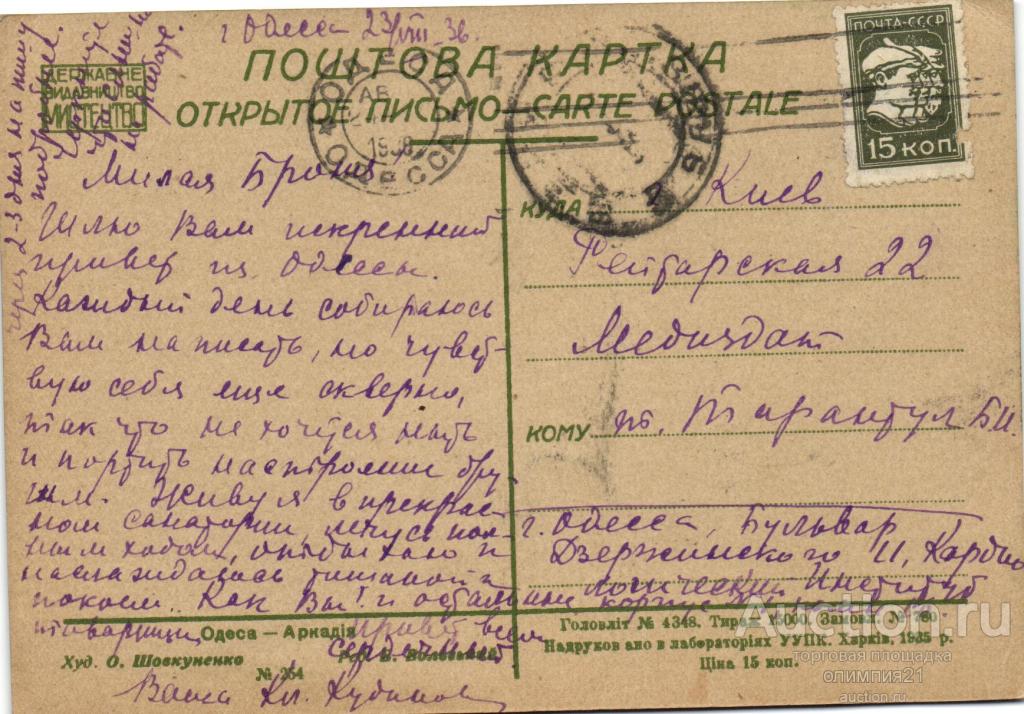 г. Одесса 23/VIII 36.
ПОШТОВА КАРТКА
ДЕРЖАВНЕ
ВИДАВНИЦТВО
МИСТЕЦТВО
ОТКРЫТОЕ ПИСЬМО - CARTE POSTALE
ПОЧТА-СССР
15 КОП.
ОДЕССА
Милая Броня
Шлю Вам искренний
привет из Одессы.
Каждый день собираюсь
Вам написать, но чувст-
вую себя еще скверно,
так что не хочется ныть
и портить настроение дру-
гим. Живу я в прекрас-
ном санатории, лечусь пол-
ным ходом, отдыхаю и
наслаждаюсь тишиной и
покоем. Как Вы? и осталь
товарищи
привет всем
сердечный
Ваша Кл.
через 2-3 дня напишу
подробнее.
КУДА
Киев
Рейтарская 22
Медиздат
КОМУ
т. Тарантул Б.И.
г. Одесса, Бульвар
Дзержинского 11, Кардио
логический Институт
Одеса – Аркадія
Худ. О. Шовкуненко
№ 264
Головліт № 4348. Тираж 15000. Замовл. № 780
Надруковано в лабораторіях УУПК. Харків, 1935 р.
Ціна 15 коп.
Auction.ru
торговая площадка
олимпия21
auction.ru